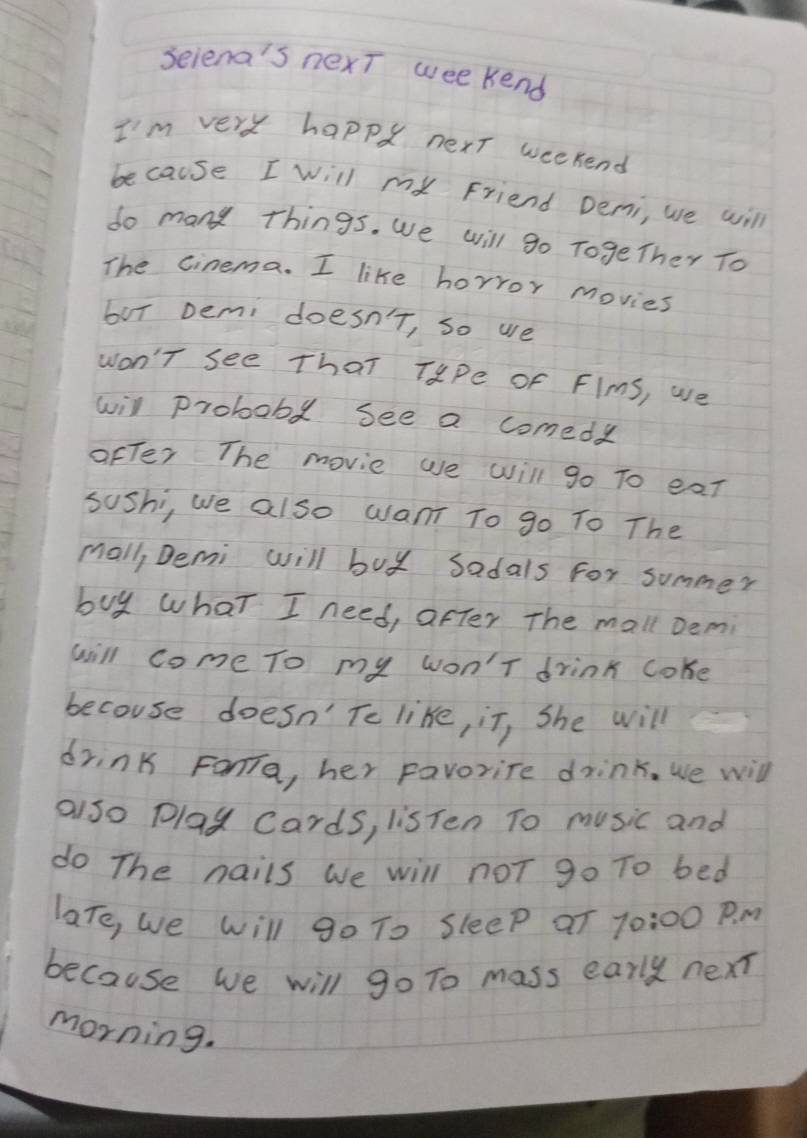 Selena's next weekend
I'm very happy next weekend
because I will my Friend Demi, we will
do many Things. we will go TogeTher To
The cinema. I like horror movies
buT Demi doesn'T, so we
won'T see ThaT Type of Flms, we
will probaby see a comedy
after The movie we will go To eaT
sushi, we also want To go To The
mall, Demi will buy sadals For summer
buy whaT I need, after The mall Demi
will come To my won'T drink coke
becouse doesn'T like, iT, She will
drink Fanta, her Favorite drink. we will
also play cards, listen To music and
do The nails we will noT go To bed
laTe, we will go To sleep aT 10:00 P.M
because we will go To mass early nexT
morning.